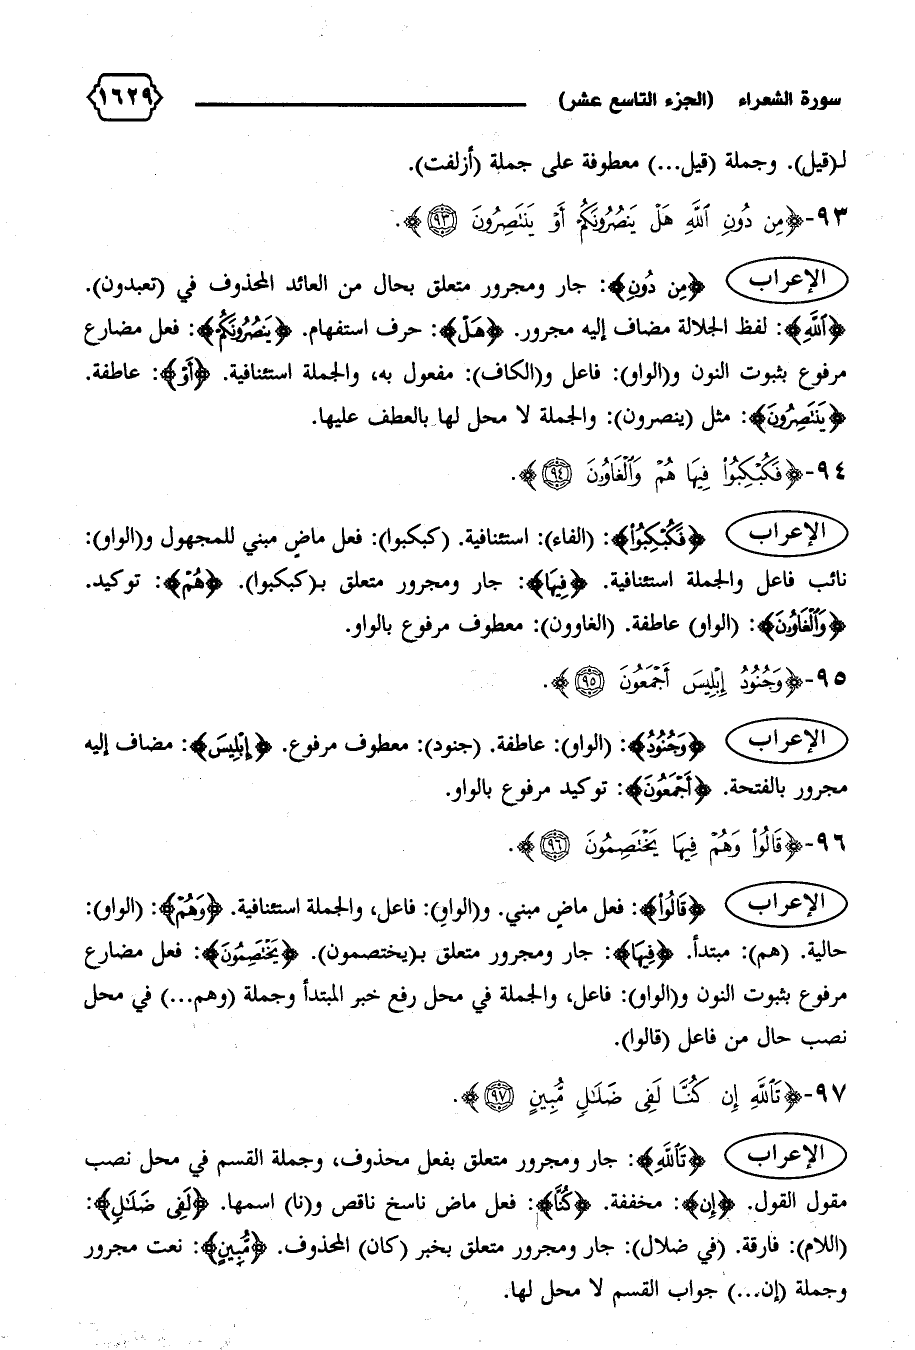 سورة الشعراء (الجزء التاسع عشر) ١٦٢٩
لـ(قيل). وجملة (قيل...) معطوفة على جملة (أزلفت).
٩٣-﴿مِن دُونِ ٱللَّهِ هَلْ يَنصُرُونَكُمْ أَوْ يَنتَصِرُونَ ٩٣﴾.
الإعراب ﴿مِن دُونِ﴾: جار ومجرور متعلق بحال من العائد المحذوف في (تعبدون).
﴿ٱللَّهِ﴾: لفظ الجلالة مضاف إليه مجرور. ﴿هَلْ﴾: حرف استفهام. ﴿يَنصُرُونَكُمْ﴾: فعل مضارع
مرفوع بثبوت النون و(الواو): فاعل و(الكاف): مفعول به، والجملة استئنافية. ﴿أَوْ﴾: عاطفة.
﴿يَنتَصِرُونَ﴾: مثل (ينصرون): والجملة لا محل لها بالعطف عليها.
٩٤-﴿فَكُبْكِبُوا۟ فِيهَا هُمْ وَٱلْغَاوُۥنَ ٩٤﴾.
الإعراب ﴿فَكُبْكِبُوا۟﴾: (الفاء): استئنافية. (كبكبوا): فعل ماضٍ مبني للمجهول و(الواو):
نائب فاعل والجملة استئنافية. ﴿فِيهَا﴾: جار ومجرور متعلق بـ(كبكبوا). ﴿هُمْ﴾: توكيد.
﴿وَٱلْغَاوُۥنَ﴾: (الواو) عاطفة. (الغاوون): معطوف مرفوع بالواو.
٩٥-﴿وَجُنُودُ إِبْلِيسَ أَجْمَعُونَ ٩٥﴾.
الإعراب ﴿وَجُنُودُ﴾: (الواو): عاطفة. (جنود): معطوف مرفوع. ﴿إِبْلِيسَ﴾: مضاف إليه
مجرور بالفتحة. ﴿أَجْمَعُونَ﴾: توكيد مرفوع بالواو.
٩٦-﴿قَالُوا۟ وَهُمْ فِيهَا يَخْتَصِمُونَ ٩٦﴾.
الإعراب ﴿قَالُوا۟﴾: فعل ماضٍ مبني. و(الواو): فاعل، والجملة استئنافية. ﴿وَهُمْ﴾: (الواو):
حالية. (هم): مبتدأ. ﴿فِيهَا﴾: جار ومجرور متعلق بـ(يختصمون). ﴿يَخْتَصِمُونَ﴾: فعل مضارع
مرفوع بثبوت النون و(الواو): فاعل، والجملة في محل رفع خبر المبتدأ وجملة (وهم...) في محل
نصب حال من فاعل (قالوا).
٩٧-﴿تَٱللَّهِ إِن كُنَّا لَفِى ضَلَـٰلٍ مُّبِينٍ ٩٧﴾.
الإعراب ﴿تَٱللَّهِ﴾: جار ومجرور متعلق بفعل محذوف، وجملة القسم في محل نصب
مقول القول. ﴿إِن﴾: مخففة. ﴿كُنَّا﴾: فعل ماض ناسخ ناقص و(نا) اسمها. ﴿لَفِى ضَلَـٰلٍ﴾:
(اللام): فارقة. (في ضلال): جار ومجرور متعلق بخبر (كان) المحذوف. ﴿مُّبِينٍ﴾: نعت مجرور
وجملة (إن...) جواب القسم لا محل لها.